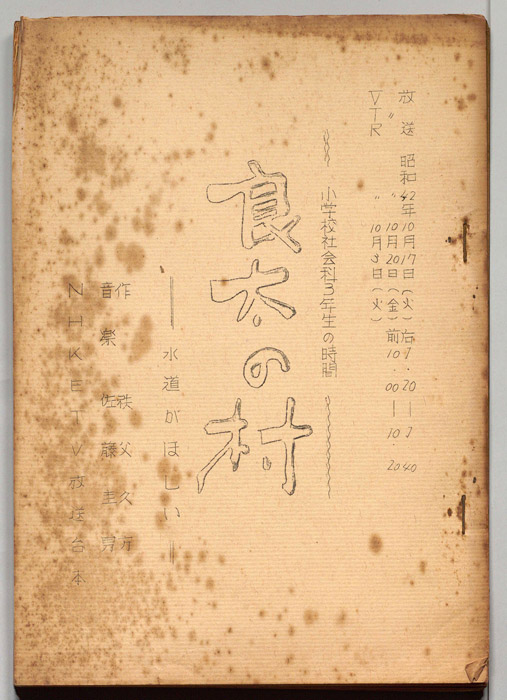 放送 昭和42年10月17日(火)
〃 〃 10月20日(金)前10.00—10.20
VTR 〃 10月3日(火)
小学校社会科3年生の時間
良太の村
水道がほしい
作 秩父久方
音楽 佐藤圭
NHKETV放送台本